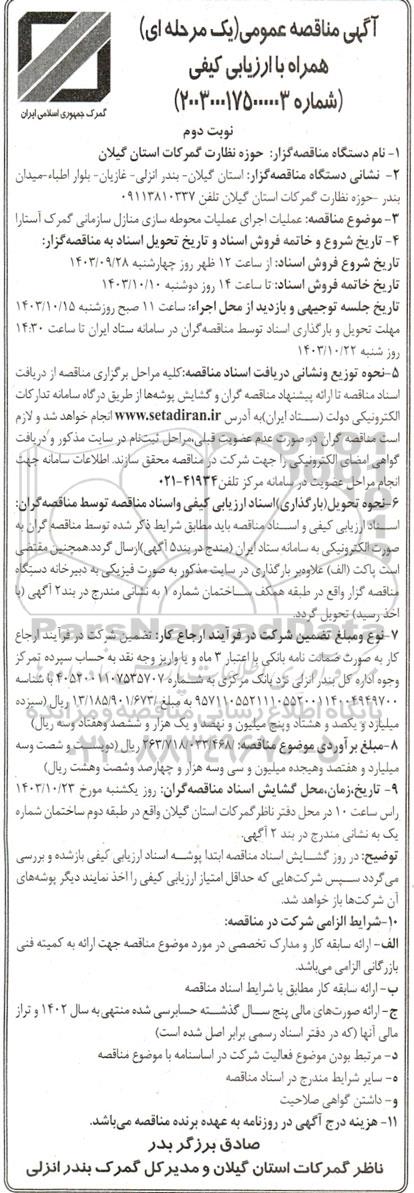 آگهی مناقصه عمومی(یک مرحله ای)
همراه با ارزیابی کیفی
(شماره ۲۰۰۳۰۰۰۱۷۵۰۰۰۰۰۳)
گمرک جمهوری اسلامی ایران
نوبت دوم
۱- نام دستگاه مناقصه‌گزار: حوزه نظارت گمرکات استان گیلان
۲- نشانی دستگاه مناقصه‌گزار: استان گیلان- بندر انزلی- غازیان- بلوار اطباء-میدان
بندر -حوزه نظارت گمرکات استان گیلان تلفن ۰۹۱۱۳۸۱۰۳۳۷
۳-موضوع مناقصه: عملیات اجرای عملیات محوطه سازی منازل سازمانی گمرک آستارا
۴- تاریخ شروع و خاتمه فروش اسناد و تاریخ تحویل اسناد به مناقصه‌گزار:
تاریخ شروع فروش اسناد: از ساعت ۱۲ ظهر روز چهارشنبه ۱۴۰۳/۰۹/۲۸
تاریخ خاتمه فروش اسناد: تا ساعت ۱۴ روز دوشنبه ۱۴۰۳/۱۰/۱۰
تاریخ جلسه توجیهی و بازدید از محل اجراء: ساعت ۱۱ صبح روزشنبه ۱۴۰۳/۱۰/۱۵
مهلت تحویل و بارگذاری اسناد توسط مناقصه‌گران در سامانه ستاد ایران تا ساعت ۱۴:۳۰
روز شنبه ۱۴۰۳/۱۰/۲۲
۵-نحوه توزیع ونشانی دریافت اسناد مناقصه:کلیه مراحل برگزاری مناقصه از دریافت
اسناد مناقصه تا ارائه پیشنهاد مناقصه گران و گشایش پوشه‌هااز طریق درگاه سامانه تدارکات
الکترونیکی دولت (ستاد ایران)به آدرس www.setadiran.ir انجام خواهد شد و لازم
است مناقصه گران در صورت عدم عضویت قبلی،مراحل ثبت‌نام در سایت مذکور و دریافت
گواهی امضای الکترونیکی را جهت شرکت در مناقصه محقق سازند. اطلاعات سامانه جهت
انجام مراحل عضویت در سامانه مرکز تلفن۴۱۹۳۴-۰۲۱
۶-نحوه تحویل(بارگذاری)اسناد ارزیابی کیفی واسناد مناقصه توسط مناقصه‌گران:
اسناد ارزیابی کیفی و اسناد مناقصه باید مطابق شرایط ذکر شده توسط مناقصه گران به
صورت الکترونیکی به سامانه ستاد ایران (مندج در بند۵ آگهی)ارسال گردد.همچنین مقتضی
است پاکت (الف) علاوه‌بر بارگذاری در سایت مذکور به صورت فیزیکی به دبیرخانه دستگاه
مناقصه گزار واقع در طبقه همکف ساختمان شماره ۱ به نشانی مندرج در بند۲ آگهی (با
اخذ رسید) تحویل گردد.
۷-نوع ومبلغ تضمین شرکت در فرآیند ارجاع کار: تضمین شرکت در فرآیند ارجاع
کار به صورت ضمانت نامه بانکی با اعتبار ۳ ماه و یا واریز وجه نقد به حساب سپرده تمرکز
وجوه اداره کل بندر انزلی نزد بانک مرکزی به شماره ۴۰۵۲۰۰۱۱۰۷۵۳۵۷۰۷ با شناسه
به مبلغ /۱۳/۱۸۵/۹۰۱/۶۷۳ ریال (سیزده
میلیارد و یکصد و هشتاد و پنج میلیون و نهصد و یک هزار و ششصد وهفتاد وسه ریال)
۸-مبلغ برآوردی موضوع مناقصه: /۲۶۳/۷۱۸/۰۳۳/۴۶۸ ریال (دویست و شصت وسه
میلیارد و هفتصد وهیجده میلیون و سی وسه هزار و چهارصد وشصت وهشت ریال)
۹- تاریخ،زمان،محل گشایش اسناد مناقصه‌گران: روز یکشنبه مورخ ۱۴۰۳/۱۰/۲۳
راس ساعت ۱۰ در محل دفتر ناظر گمرکات استان گیلان واقع در طبقه دوم ساختمان شماره
یک به نشانی مندرج در بند ۲ آگهی.
توضیح: در روز گشایش اسناد مناقصه ابتدا پوشه اسناد ارزیابی کیفی بازشده و بررسی
می‌گردد سپس شرکت‌هایی که حداقل امتیاز ارزیابی کیفی را اخذ نمایند دیگر پوشه‌های
آن شرکت‌ها باز خواهد شد.
۱۰-شرایط الزامی شرکت در مناقصه:
الف- ارائه سابقه کار و مدارک تخصصی در مورد موضوع مناقصه جهت ارائه به کمیته فنی
بازرگانی الزامی می‌باشد.
ب- ارائه سابقه کار مطابق با شرایط اسناد مناقصه
ج- ارائه صورت‌های مالی پنج سال گذشته حسابرسی شده منتهی‌به سال ۱۴۰۲ و تراز
مالی آنها (که در دفتر اسناد رسمی برابر اصل شده است)
د- مرتبط بودن موضوع فعالیت شرکت در اساسنامه با موضوع مناقصه
ه- سایر شرایط مندرج در اسناد مناقصه
و- داشتن گواهی صلاحیت
۱۱- هزینه درج آگهی در روزنامه به عهده برنده مناقصه می‌باشد.
صادق برزگر بدر
ناظر گمرکات استان گیلان و مدیرکل گمرک بندر انزلی